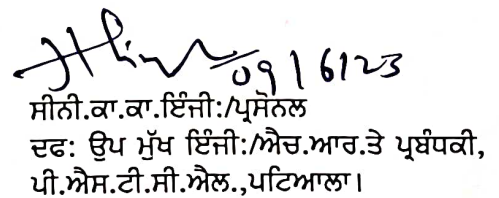 09/6/23
ਸੀਨੀ.ਕਾ.ਕਾ.ਇੰਜੀ:/ਪ੍ਰਸੋਨਲ
ਦਫ: ਉਪ ਮੁੱਖ ਇੰਜੀ:/ਐਚ.ਆਰ.ਤੇ ਪ੍ਰਬੰਧਕੀ,
ਪੀ.ਐਸ.ਟੀ.ਸੀ.ਐਲ.,ਪਟਿਆਲਾ।